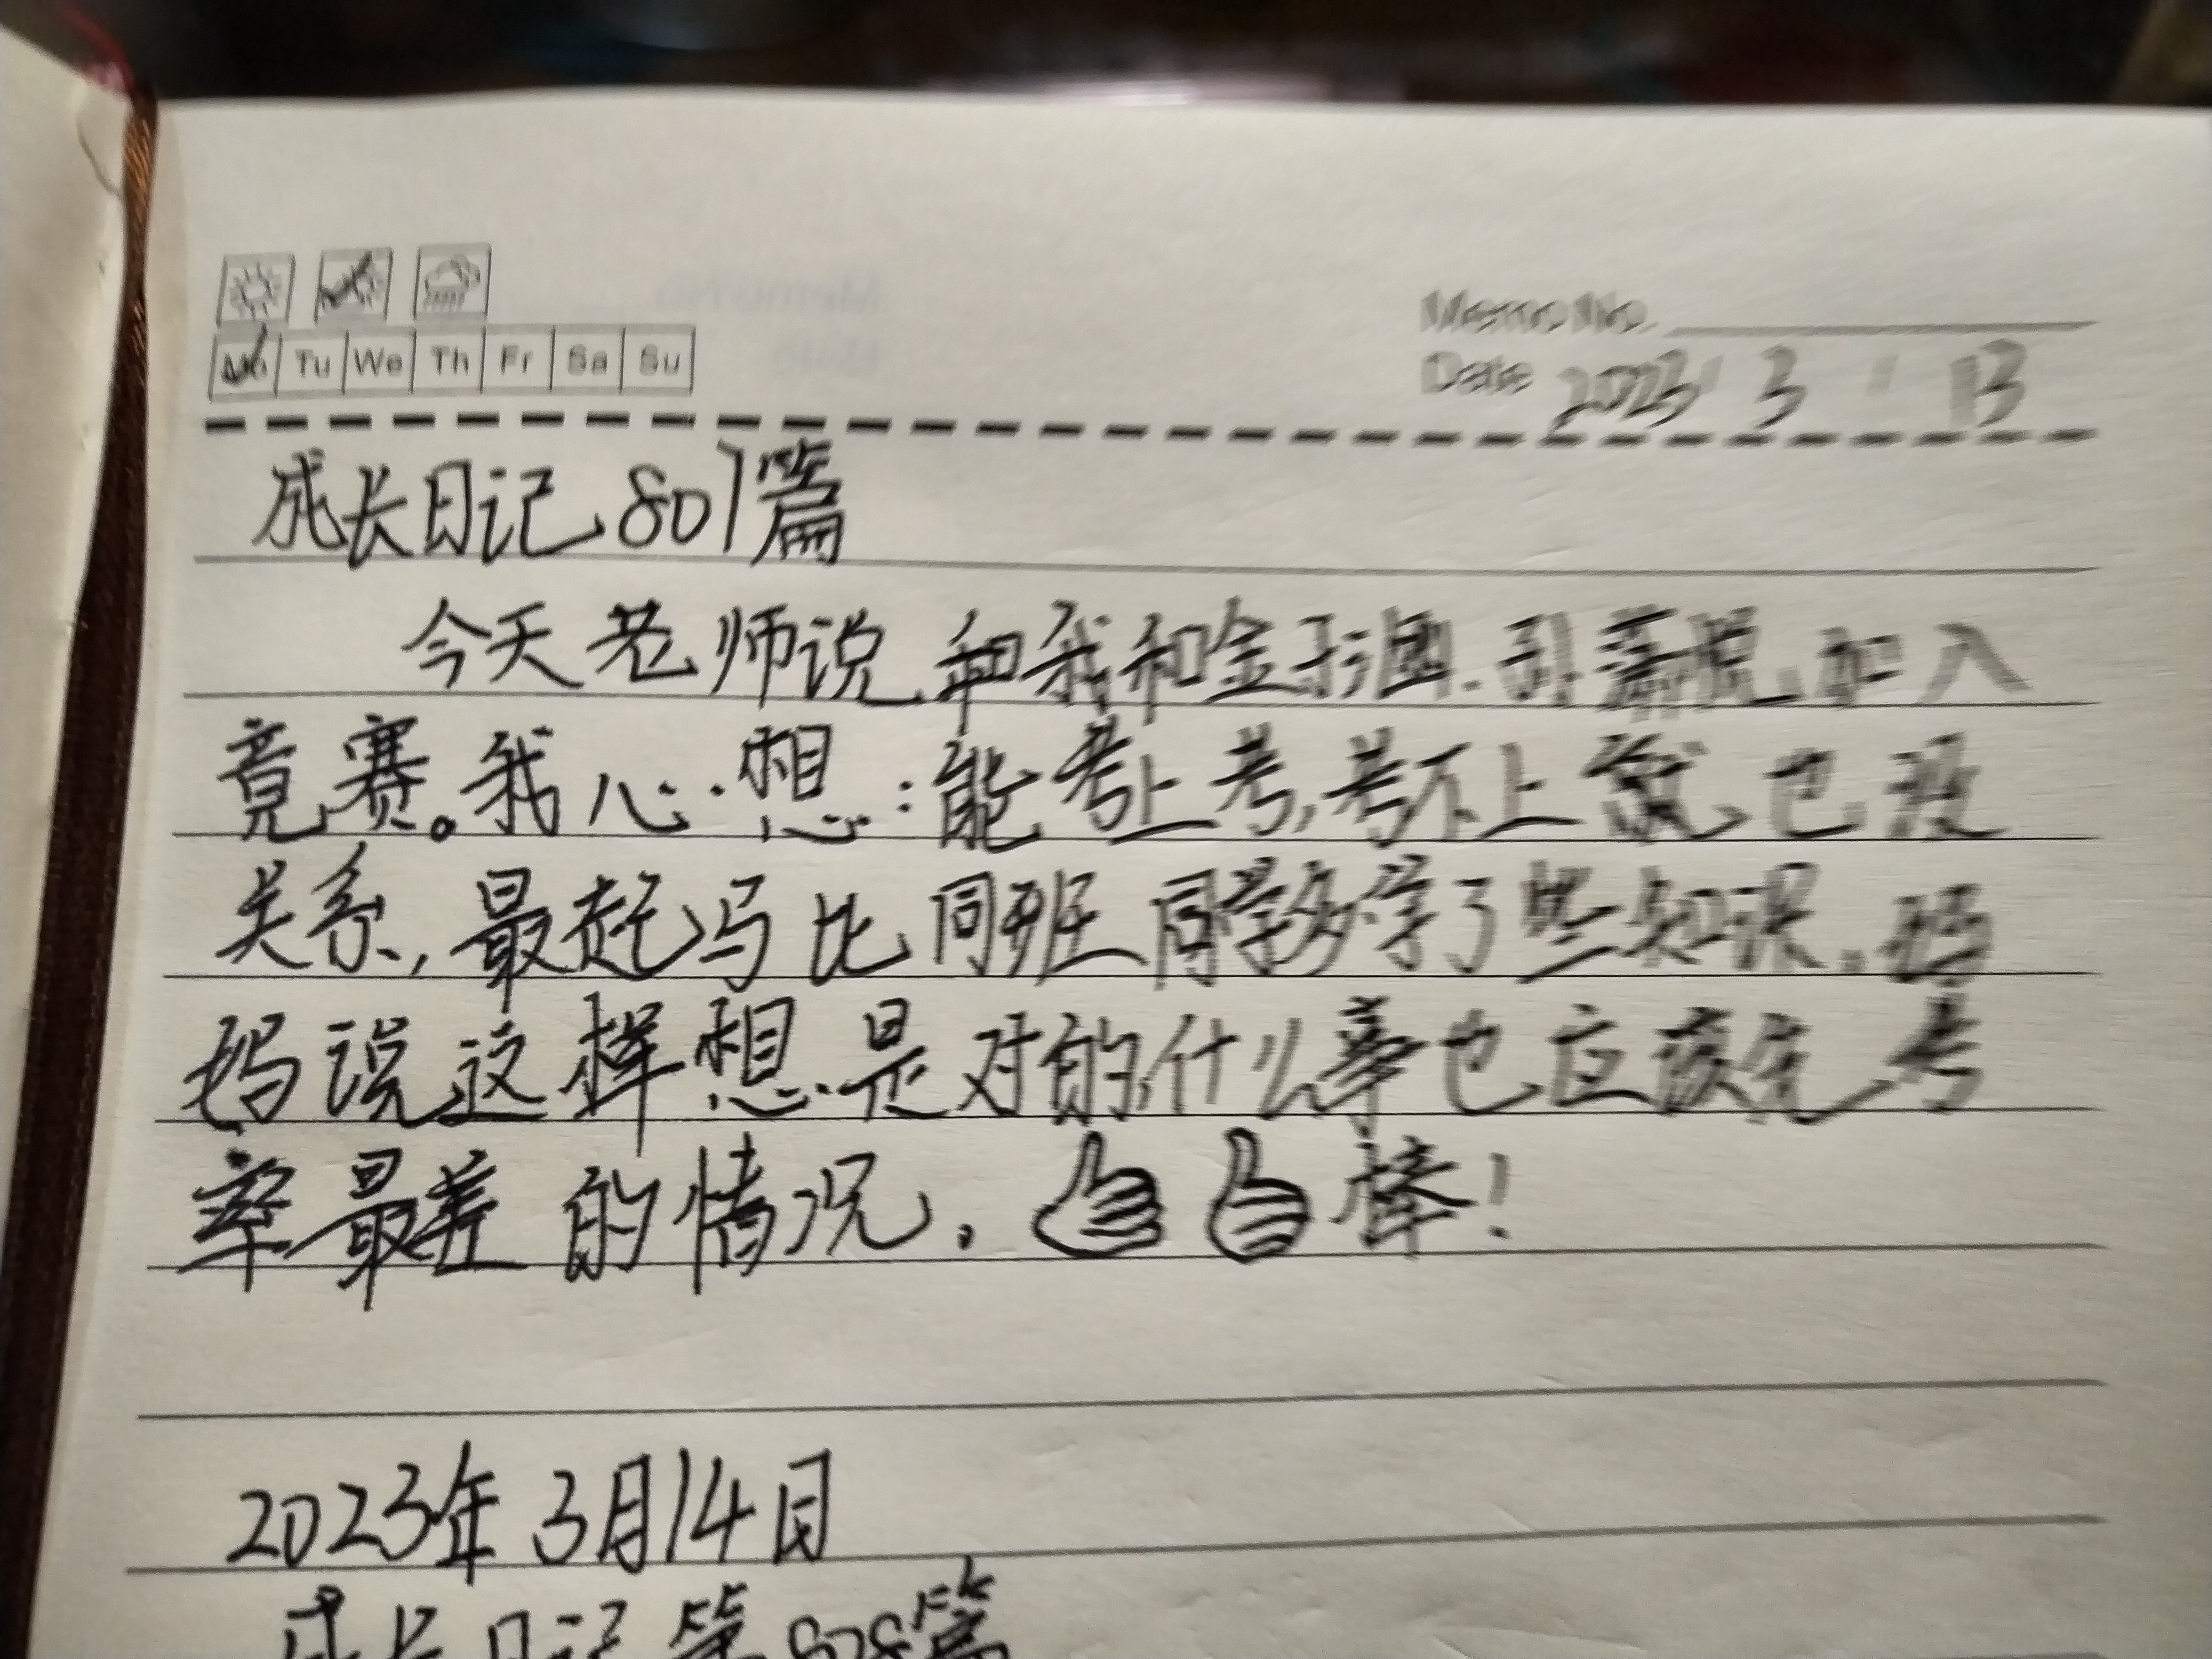 Memo No.
Mo Tu We Th Fr Sa Su
Date 2023 3 13
成长日记807篇
今天老师说和我和金 加入
竞赛。我心想:能考上考,考不上就也没
关系,最起码比同班同学多学了些知识。妈
妈说这样想是对的,什么事也应该先考
率最差的情况,棒!
2023年3月14日
成长日记第808篇